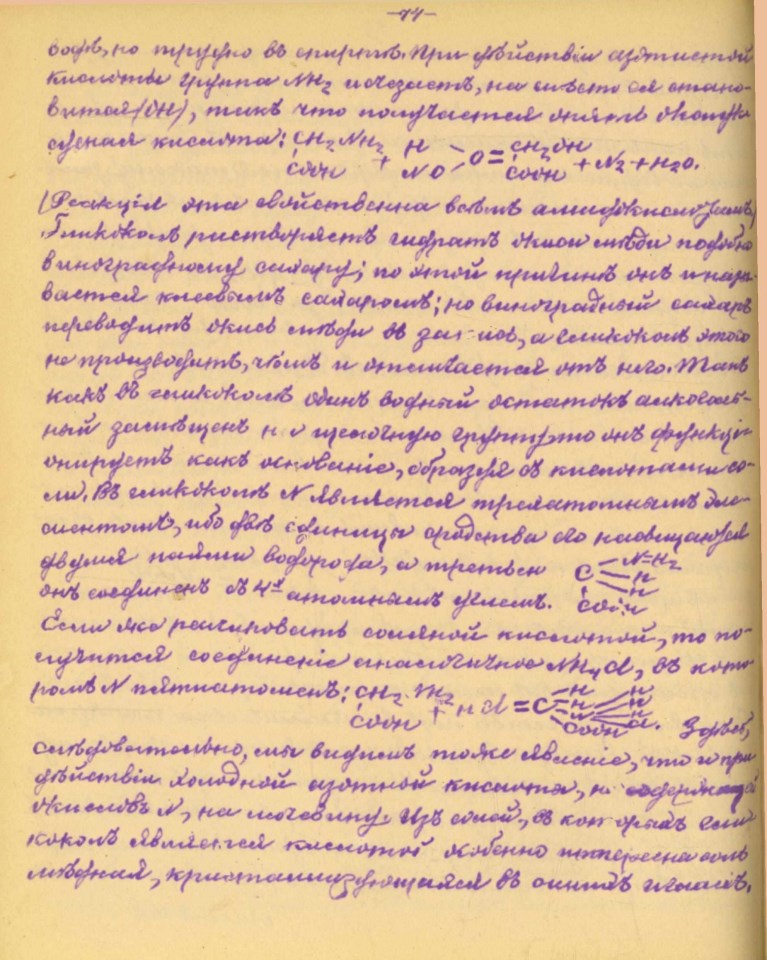 —74—
водѣ, но трудно въ спиртѣ. При дѣйствіи азотистой
кислоты группа NH2 исчезаетъ, на мѣсто ея стано-
вится (OH), такъ что получается опять оксиук-
сусная кислота: CH2NH2 COOH + H NO > O = CH2OH COOH + N2 + H2O.
(Реакція эта свойственна всѣмъ амидокислотамъ)
Гликоколъ растворяетъ гидратъ окиси мѣди подобно
виноградному сахару; по этой причинѣ онъ и назы-
вается клеевымъ сахаромъ; но виноградный сахаръ
переводитъ окись мѣди въ закись, а гликоколъ этого
не производитъ, чѣмъ и отличается отъ него. Такъ
какъ въ гликоколѣ одинъ водный остатокъ алкоголь-
ный замѣщенъ на щелочную группу, то онъ функці-
онируетъ какъ основаніе, образуя съ кислотами со-
ли. Въ гликоколѣ N является трехатомнымъ эле-
ментомъ, ибо двѣ единицы сродства его насыщаются
двумя паями водорода, а третьей C — N=H2 H H
онъ соединенъ съ 4хъ атомнымъ углемъ. COOH
Если же реагировать соляной кислотой, то по-
лучится соединеніе аналогичное NH4Cl, въ кото-
ромъ N пятиатоменъ: CH2 NH2 COOH + HCl = C H H N COOH H H H Cl. Здѣсь,
слѣдовательно, мы видимъ тоже явленіе, что и при
дѣйствіи холодной азотной кислоты, не содержащей
окисловъ N, на мочевину. Изъ солей, въ которыхъ гли-
коколъ является кислотой особенно интересна соль
мѣдная, кристаллизующаяся въ синихъ иглахъ.